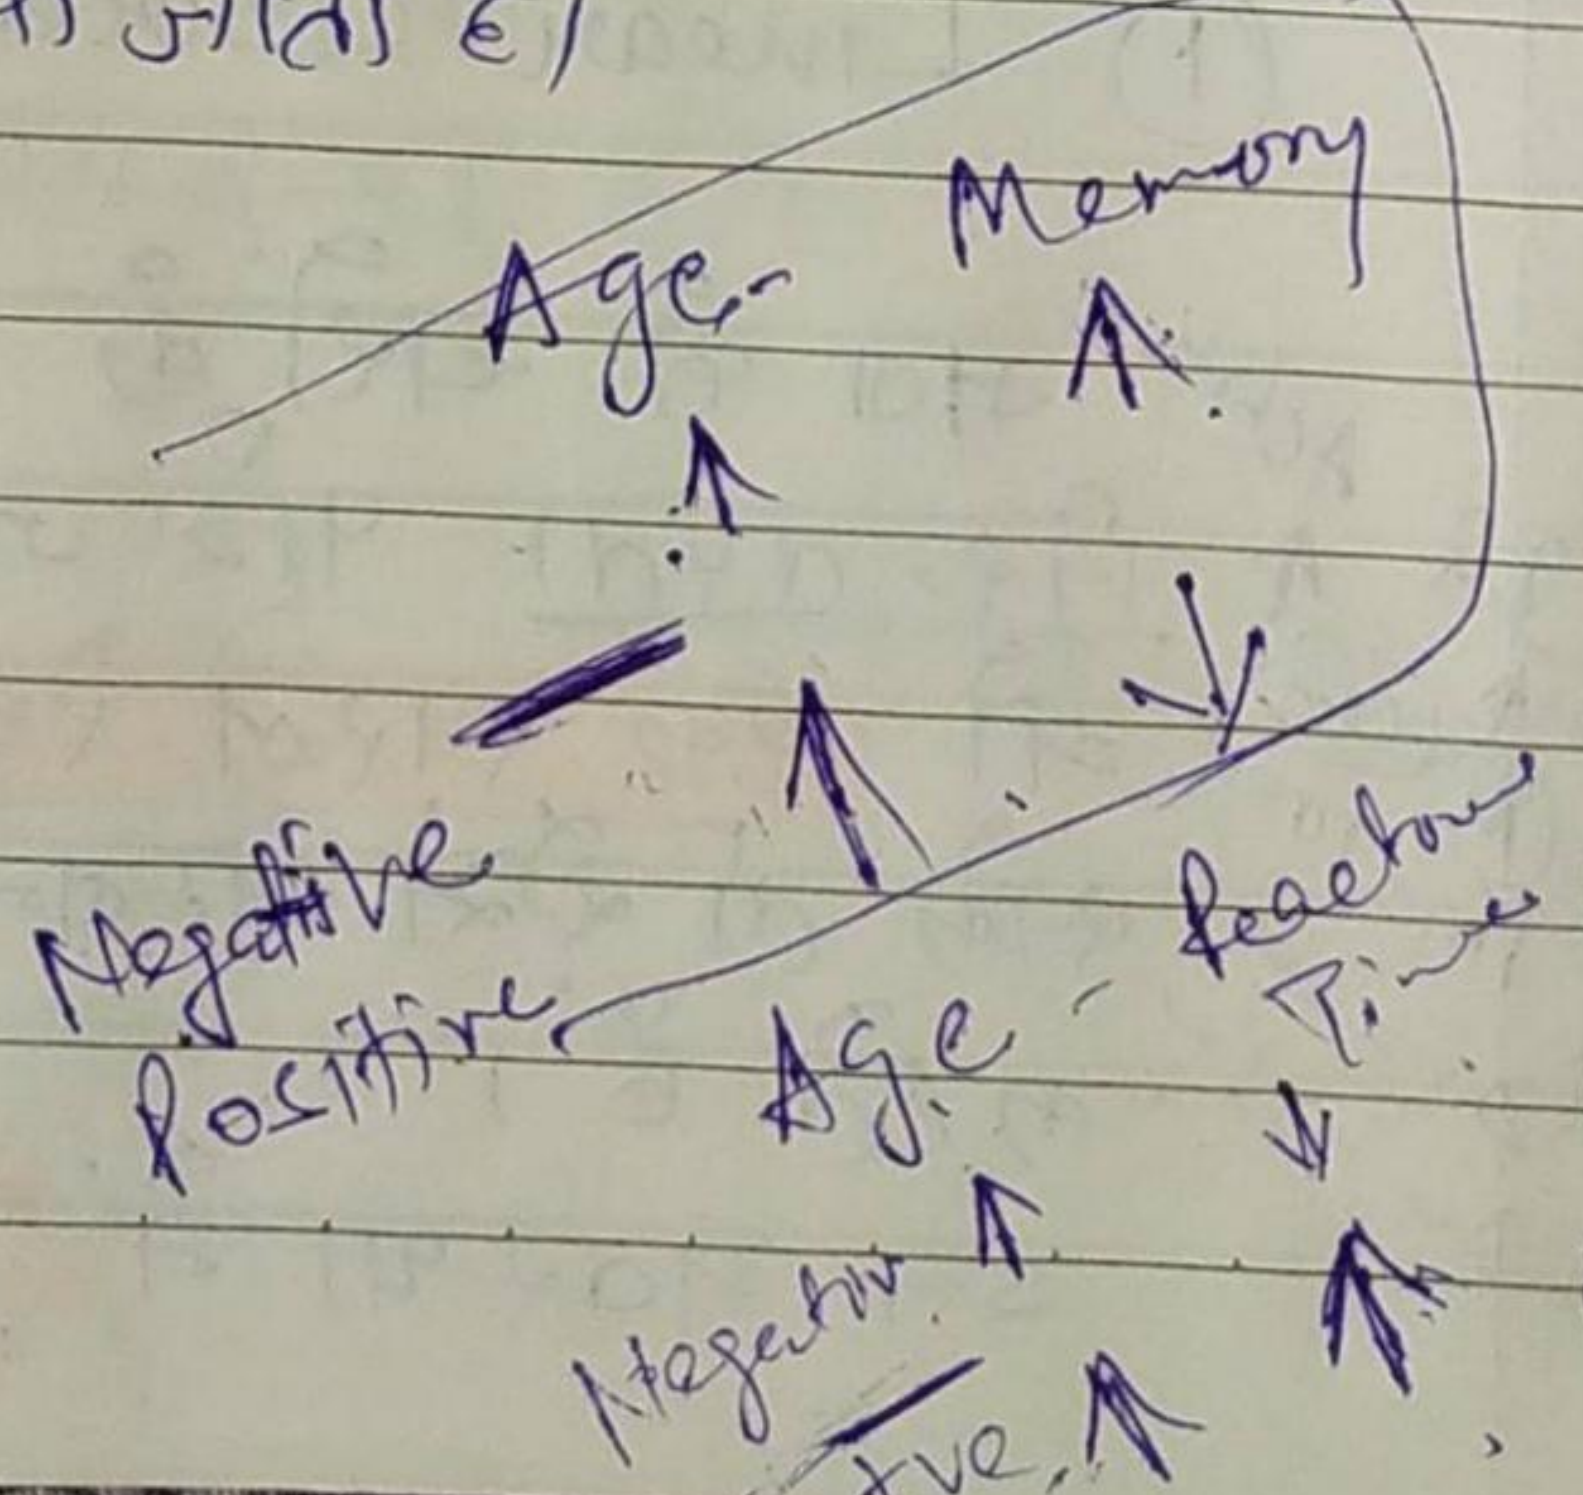 जाता है।
Memory
Age -
↑ ↑
↑ ↓
Negative
Positive
Age - Reaction
Time
↑ ↓
Negative ↑
+ve ↑